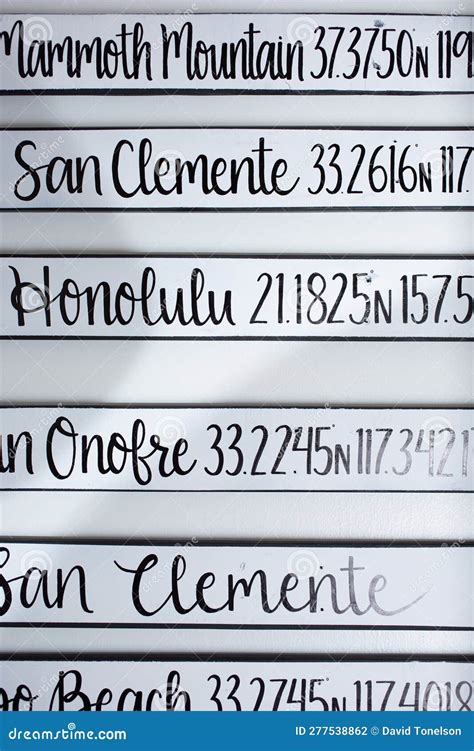 Mammoth Mountain 37.3750N 119
San Clemente 33.2616N 117.
Honolulu 21.1825N 157.5
an Onofre 33.2245N 117.3421
San Clemente
oo Beach 33.2745N 117.4018
dreamstime.com
ID 277538862 © David Tonelson